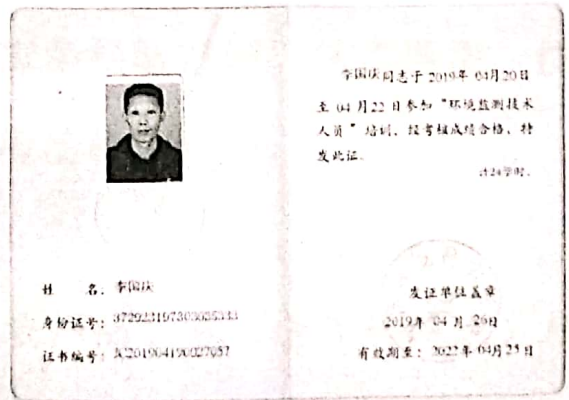 姓 名：李国庆
身份证号：
证书编号：
李国庆同志于 2019年 04月20日
至 04 月 22 日参加 "环境监测技术
人员" 培训，经考核成绩合格，特
发此证。
计24学时。
发证单位盖章
2019年 04 月 26日
有效期至：2022年 04月25日